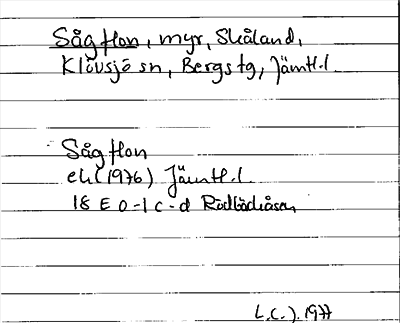 Sågflon, myr, Skåland,
Klövsjö sn, Bergs tg, Jämtl.l
Sågflon
ek (1976) Jämtl.l.
18 E 0-1 c-d Rödbäcksåsen
L.C.J. 1977